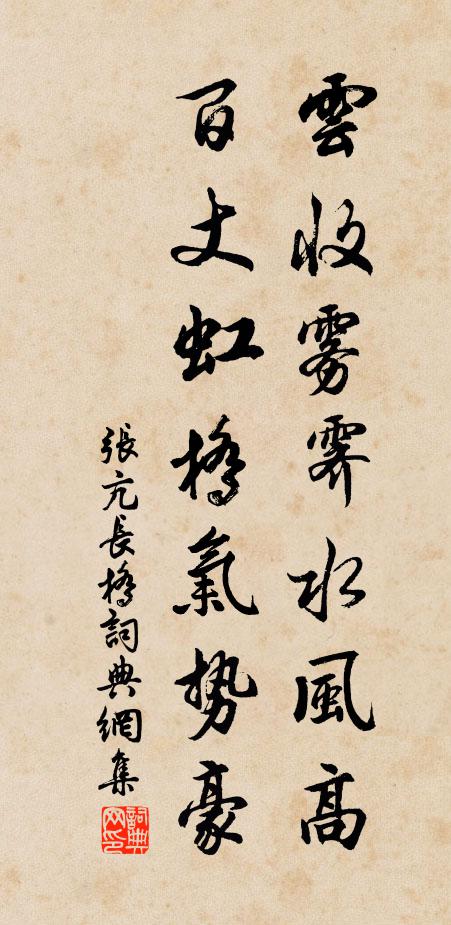 雲收雾霁水風高
百丈虹橋氣势豪
張亢長橋詞典網集
詞典网印